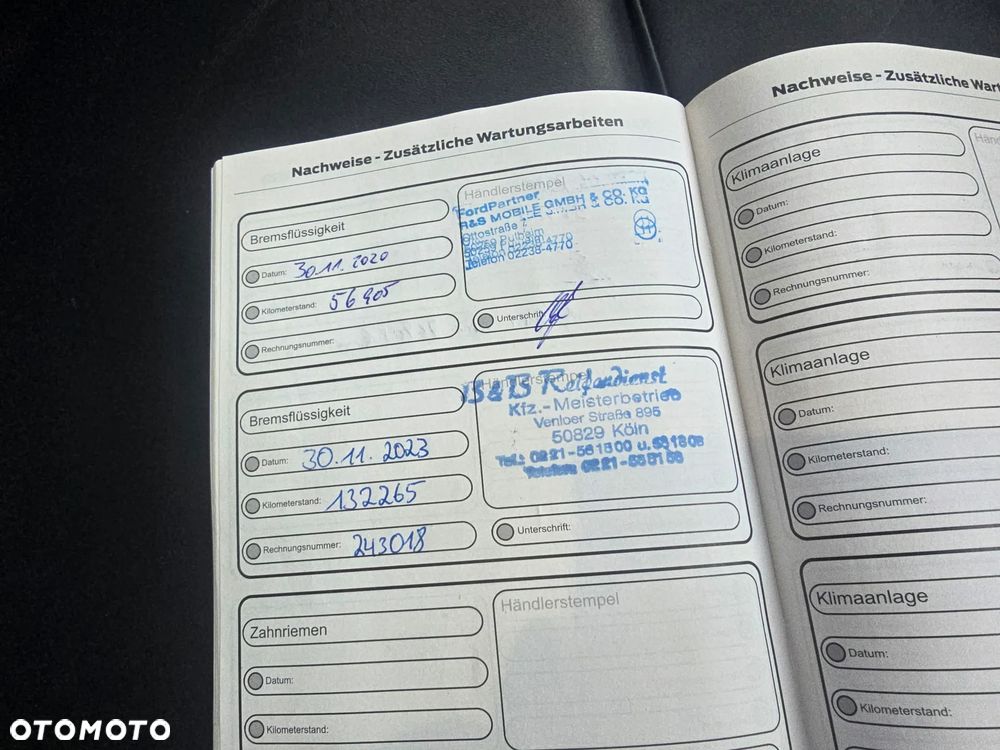 Nachweise - Zusätzliche Wartungsarbeiten
Bremsflüssigkeit
Datum: 30.11.2020
Kilometerstand: 56905
Rechnungsnummer:
Händlerstempel
FordPartner
R&S MOBILE GMBH & CO. KG
Ottostraße 7
50259 Pulheim
Telefon 02238-4770
Unterschrift
Bremsflüssigkeit
Datum: 30.11.2023
Kilometerstand: 132265
Rechnungsnummer: 243018
Händlerstempel
B&B Reifendienst
Kfz.-Meisterbetrieb
Venloer Straße 895
50829 Köln
Unterschrift:
Zahnriemen
Datum:
Kilometerstand:
Händlerstempel
Nachweise - Zusätzliche Wart
Klimaanlage
Datum:
Kilometerstand:
Rechnungsnummer:
Klimaanlage
Datum:
Kilometerstand:
Rechnungsnummer:
Klimaanlage
Datum:
Kilometerstand:
OTOMOTO